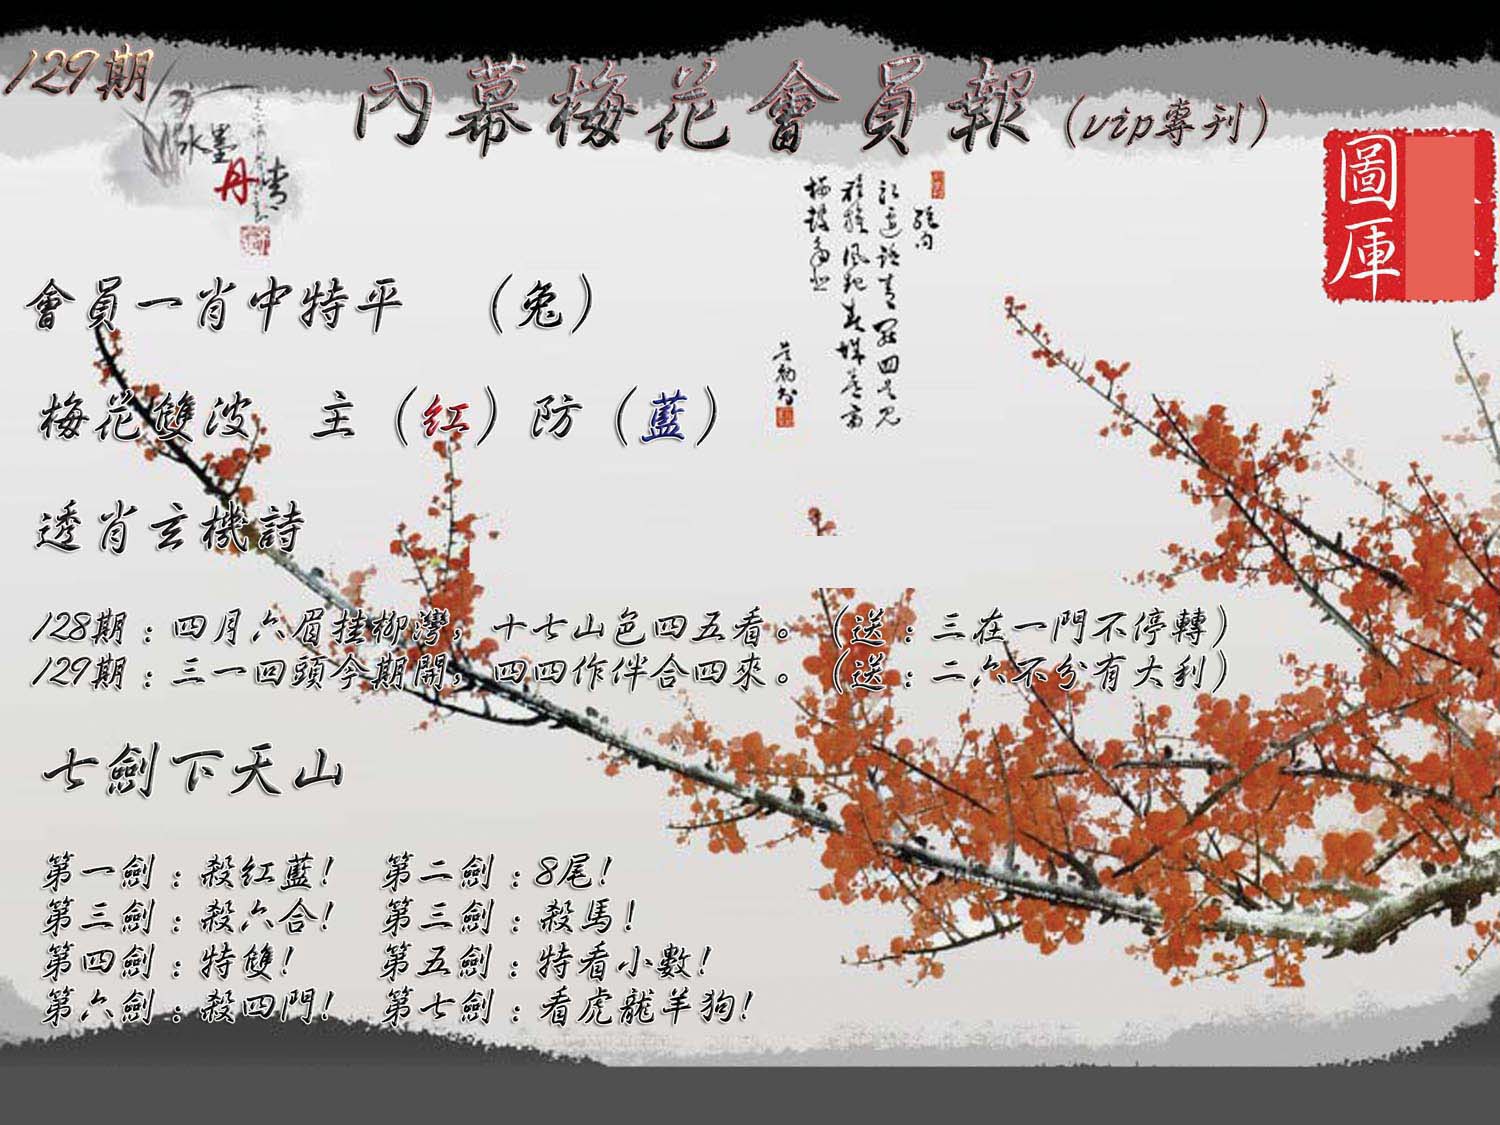 129期
內幕梅花會員報（vip專刊）
水墨
丹青
圖庫
會員一肖中特平　（兔）
梅花雙波　主（紅）防（藍）
透肖玄機詩
128期：四月六眉挂柳灣，十七山色四五看。（送：三在一門不停轉）
129期：三一回頭今期開，四四作伴合四來。（送：二六不分有大利）
七劍下天山
第一劍：殺紅藍！　第二劍：8尾！
第三劍：殺六合！　第三劍：殺馬！
第四劍：特雙！　第五劍：特看小數！
第六劍：殺四門！　第七劍：看虎龍羊狗！